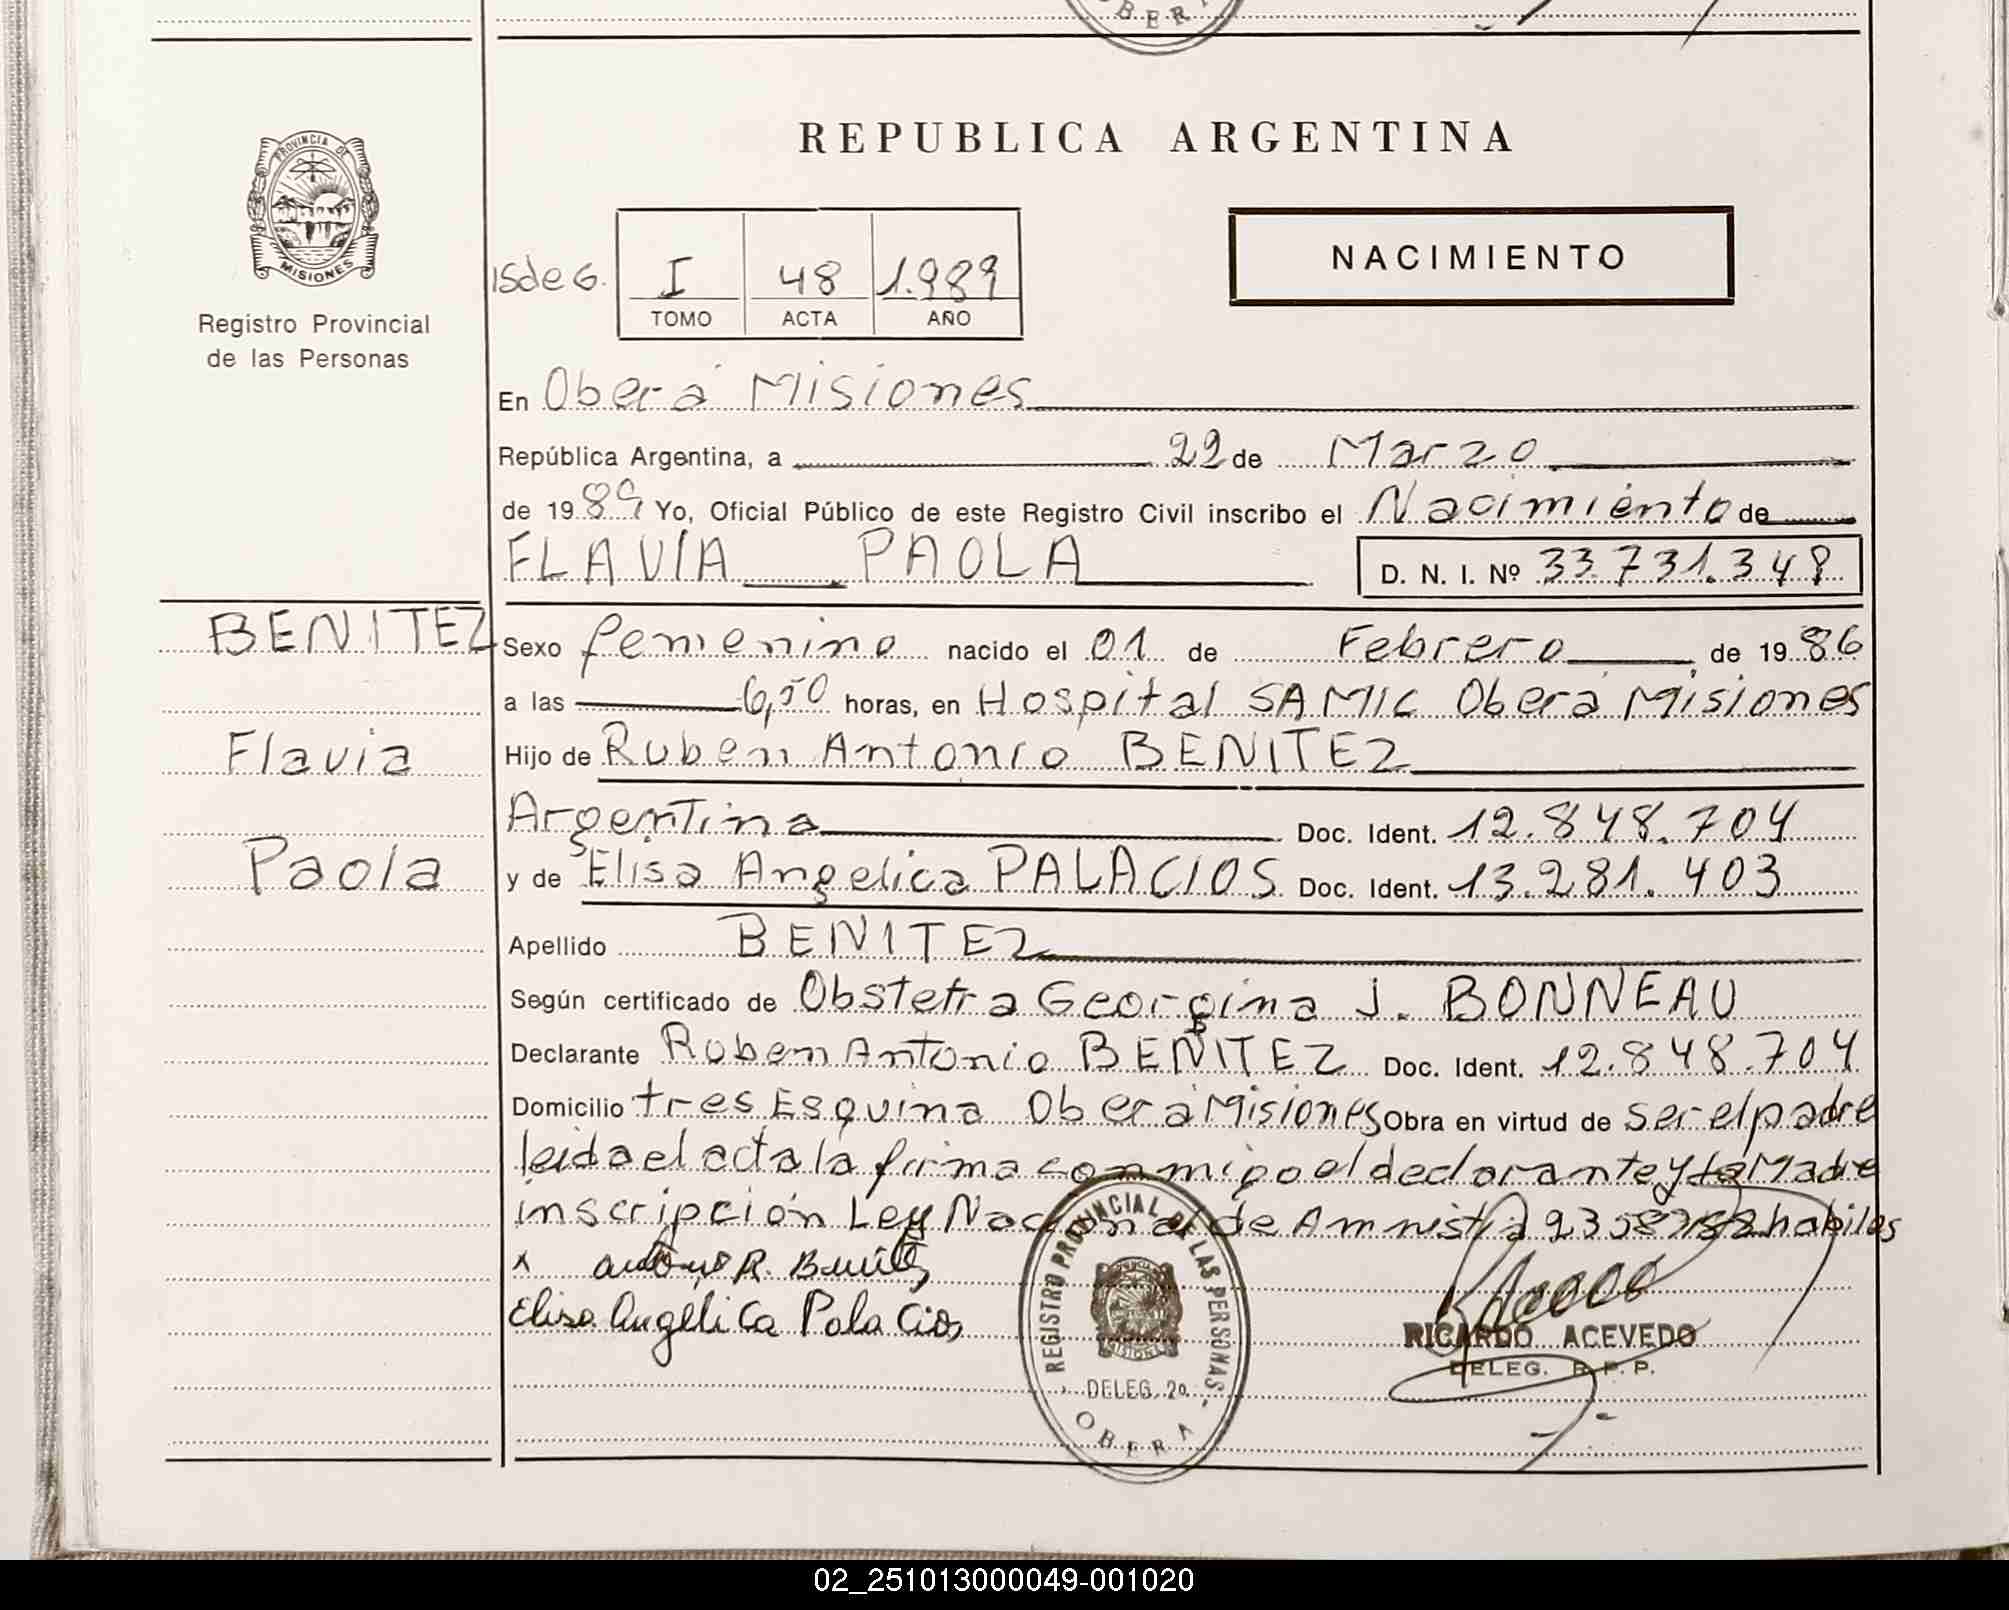 OBERA
REPUBLICA ARGENTINA
PROVINCIA DE
MISIONES
NACIMIENTO
ISdeG. I 48 1.989
TOMO ACTA AÑO
Registro Provincial
de las Personas
En Oberá Misiones
República Argentina, a 22 de Marzo
de 1989 Yo, Oficial Público de este Registro Civil inscribo el Nacimiento de
FLAVIA PAOLA D. N. I. Nº 33.731.348
BENITEZ
Sexo femenino nacido el 01 de Febrero de 1986
a las 6,50 horas, en Hospital SAMIC Oberá Misiones
Flavia
Hijo de Ruben Antonio BENITEZ
Argentina Doc. Ident. 12.848.704
Paola
y de Elisa Angelica PALACIOS Doc. Ident. 13.281.403
Apellido BENITEZ
Según certificado de Obstetra Georgina J. BONNEAU
Declarante Ruben Antonio BENITEZ Doc. Ident. 12.848.704
Domicilio tres Esquina Oberá Misiones Obra en virtud de ser el padre
leida el acta la firma conmigo el declarante y la Madre
inscripción Ley Nacional de Amnistia habiles
x Antonio R. Benitez
Elisa Angélica Palacios
REGISTRO PROVINCIAL DE LAS PERSONAS
MISIONES
DELEG. 2a.
OBERA
RICARDO ACEVEDO
DELEG. R. P. P.
02_251013000049-001020